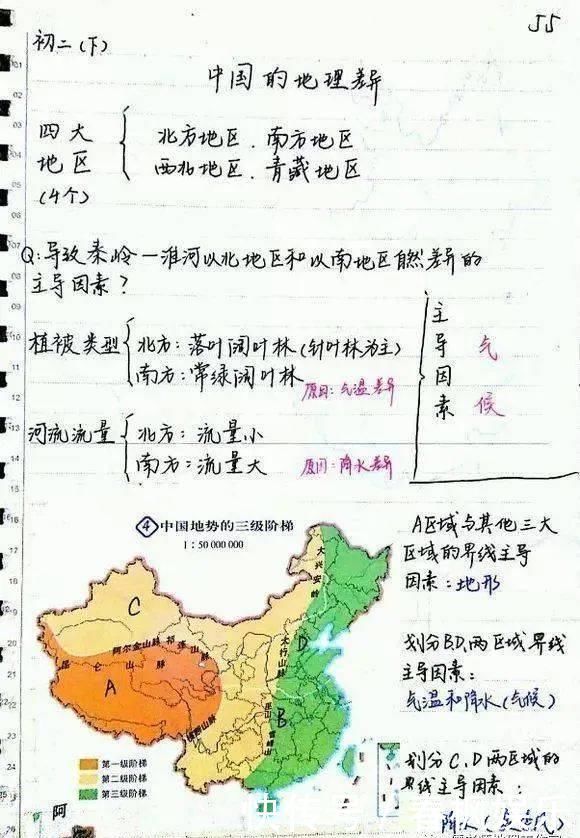 55
初二(下)
中国的地理差异
四大
地区
(4个)
北方地区、南方地区
西北地区、青藏地区
Q:导致秦岭一淮河以北地区和以南地区自然差异的
主导因素?
植被类型
北方:落叶阔叶林(针叶林为主)
南方:常绿阔叶林
原因:气温差异
主导因素
气候
河流流量
北方:流量小
南方:流量大
原因:降水差异
④中国地势的三级阶梯
1:50 000 000
大兴安岭
C
阿尔金山脉
祁连山脉
昆仑山脉
太行山脉
D
A
横断山脉
巫山
雪峰山
B
第一级阶梯
第二级阶梯
第三级阶梯
阿
A区域与其他三大
区域的界线主导
因素:地形
划分BD两区域界线
主导因素:
气温和降水(气候)
划分C、D两区域的
界线主导因素: